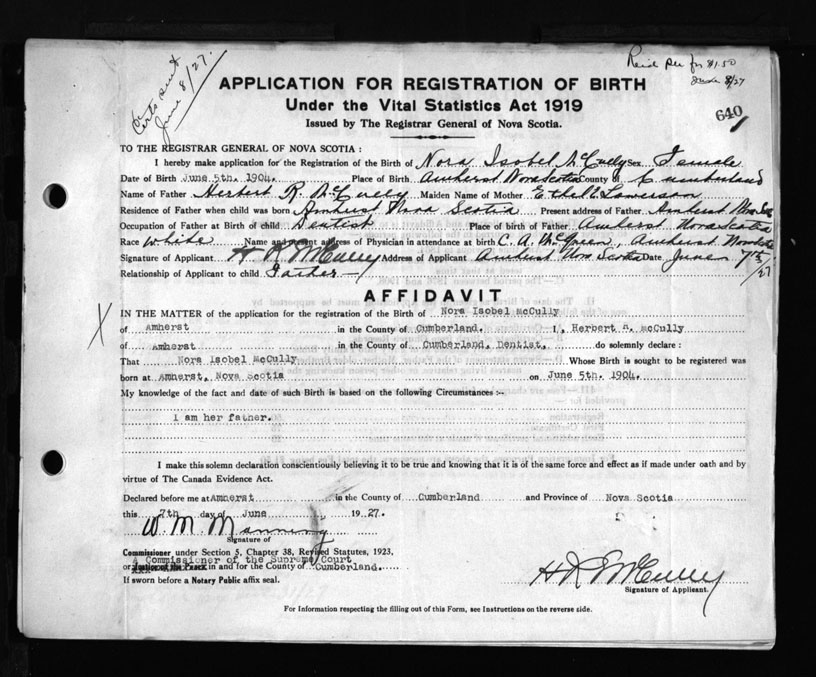 Certs sent
June 8/27.
Recd per for $1.50
June 8/27
640
APPLICATION FOR REGISTRATION OF BIRTH
Under the Vital Statistics Act 1919
Issued by The Registrar General of Nova Scotia.
TO THE REGISTRAR GENERAL OF NOVA SCOTIA :
I hereby make application for the Registration of the Birth of Nora Isobel McCully Sex Female
Date of Birth June 5th. 1904. Place of Birth Amherst Nova Scotia County of Cumberland
Name of Father Herbert R. McCully Maiden Name of Mother Ethel E Lowerison
Residence of Father when child was born Amherst Nova Scotia Present address of Father Amherst Nova Sco
Occupation of Father at Birth of child Dentist Place of birth of Father Amherst, Nova Scotia
Race White Name and present address of Physician in attendance at birth C. A. McQueen, Amherst Nova Scotia
Signature of Applicant H R McCully Address of Applicant Amherst Nova Scotia Date June 7th/27
Relationship of Applicant to child Father —
AFFIDAVIT
IN THE MATTER of the application for the registration of the Birth of Nora Isobel McCully
of Amherst in the County of Cumberland. I, Herbert R. McCully
of Amherst in the County of Cumberland, Dentist, do solemnly declare :
That Nora Isobel McCully Whose Birth is sought to be registered was
born at Amherst, Nova Scotia on June 5th. 1904.
My knowledge of the fact and date of such Birth is based on the following Circumstances :-
I am her father.
I make this solemn declaration conscientiously believing it to be true and knowing that it is of the same force and effect as if made under oath and by
virtue of The Canada Evidence Act.
Declared before me at Amherst in the County of Cumberland and Province of Nova Scotia
this 7th day of June 1927.
W. M. Manning
Signature of
Commissioner under Section 5, Chapter 38, Revised Statutes, 1923,
Commissioner of the Supreme Court
or Justice of the Peace in and for the County of Cumberland.
If sworn before a Notary Public affix seal.
H R McCully
Signature of Applicant.
For Information respecting the filling out of this Form, see Instructions on the reverse side.